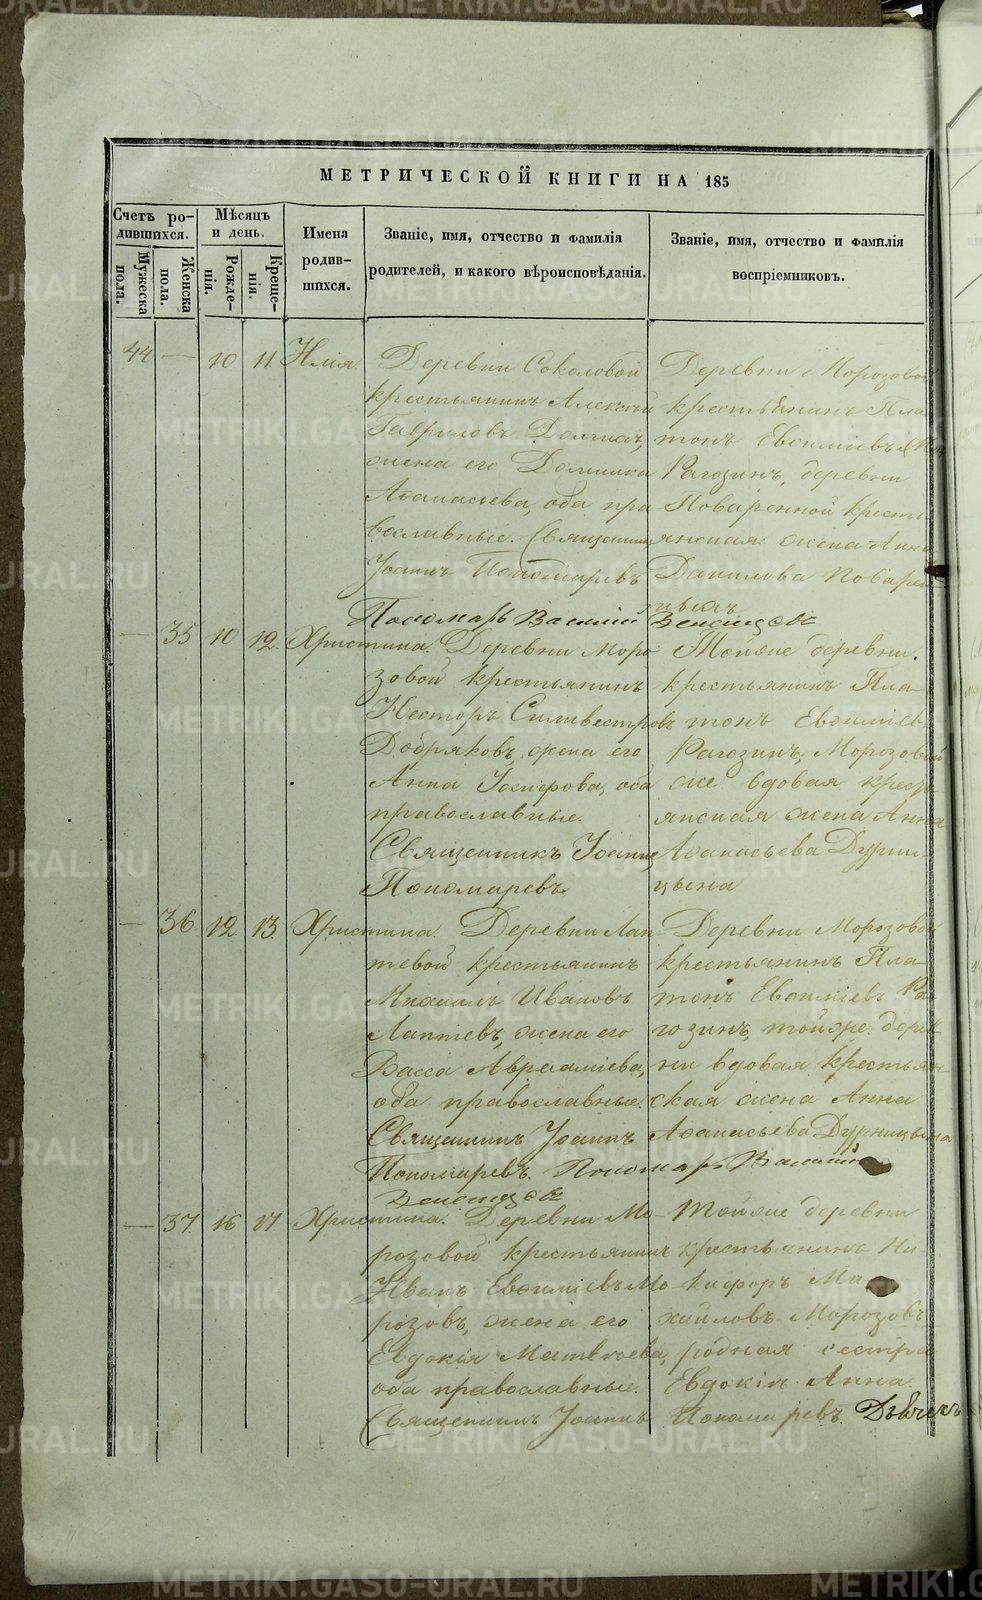 МЕТРИЧЕСКОЙ КНИГИ НА 185
Счетъ ро-
дившихся.
Мужеска
пола.
Женска
пола.
Мѣсяцъ
и день.
Рожде-
нія.
Креще-
нія.
Имена
родив-
шихся.
Званіе, имя, отчество и фамилія
родителей, и какого вѣроисповѣданія.
Званіе, имя, отчество и фамилія
воспріемниковъ.
44 — 10 11 Илія
Деревни Соколовой
крестьянинъ Алексѣй
Гавриловъ
жена его Домника
Аѳанасьева, оба пра
вославные. Священникъ
Іоаннъ Пономаревъ
Пономарь Василій Венецковъ
Деревни Морозовой
крестьянинъ Пла
тонъ Евѳиміевъ
Рагозинъ, деревни
Поваренной кресть
янская жена Анна
Данилова Поваре
ныхъ
— 35 10 12 Христина.
Деревни Моро
зовой крестьянинъ
Несторъ Силивестровъ
Добряковъ, жена его
Анна Іосифова, оба
православные.
Священникъ Іоаннъ
Пономаревъ
Тойже деревни
крестьянинъ Пла-
тонъ Евѳиміевъ
Рагозинъ, Морозовой
же вдовая кресть
янская жена Анна
Аѳанасьева Дурни-
цына
— 36 12 13 Христина.
Деревни Лап
тевой крестьянинъ
Михаилъ Ивановъ
Лаптевъ, жена его
Васса Авраміева,
оба православные.
Священникъ Іоаннъ
Пономаревъ. Пономарь Василій
Венецковъ
Деревни Морозовой
крестьянинъ Пла
тонъ Евѳиміевъ Ра-
гозинъ, тойже дерев
ни вдовая крестьян-
ская жена Анна
Аѳанасьева Дурницына
— 37 16 17 Христина.
Деревни Мо-
розовой крестьянинъ
Иванъ Евѳиміевъ Мо
розовъ, жена его
Евдокія Матвѣева,
оба православные.
Священникъ Іоаннъ Пономаревъ.
Тойже деревни
крестьянинъ Ни-
кифоръ Ми
хайловъ Морозовъ
родная сестра
Евдокіи Анна.
METRIKI.GASO-URAL.RU